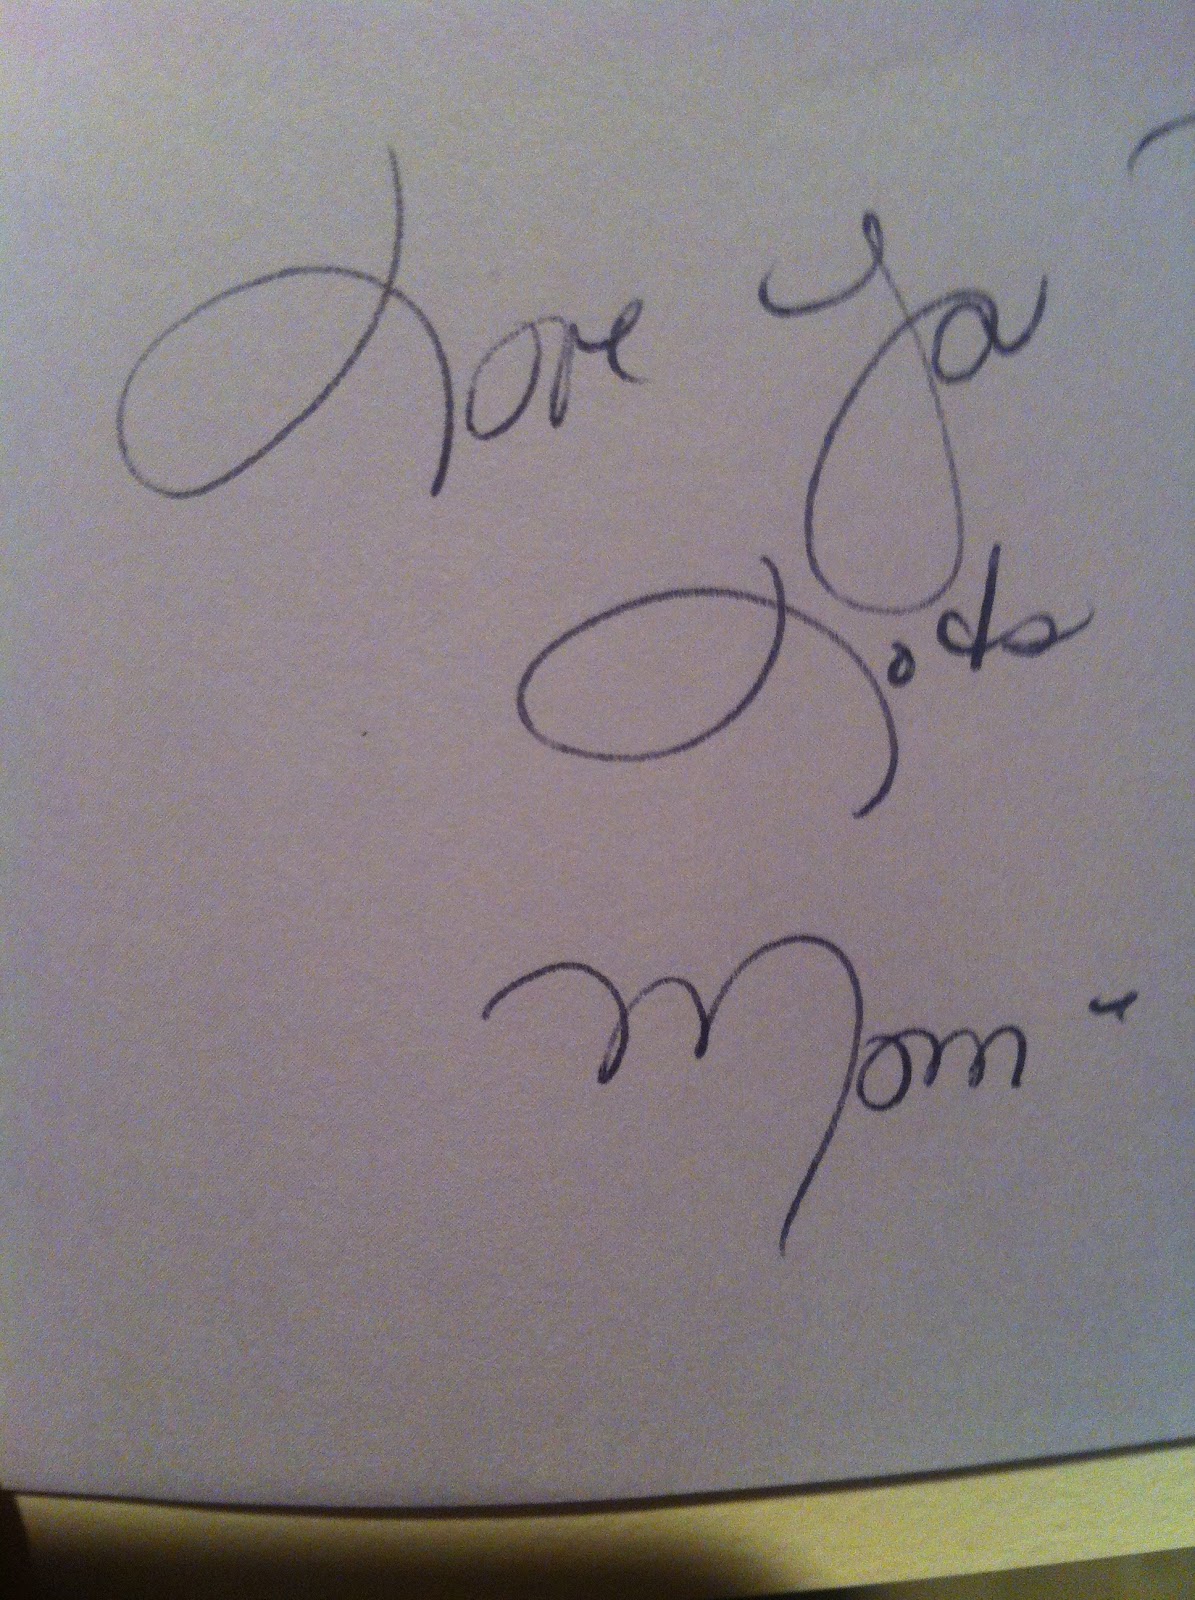 Love Ya
Lots
Mom